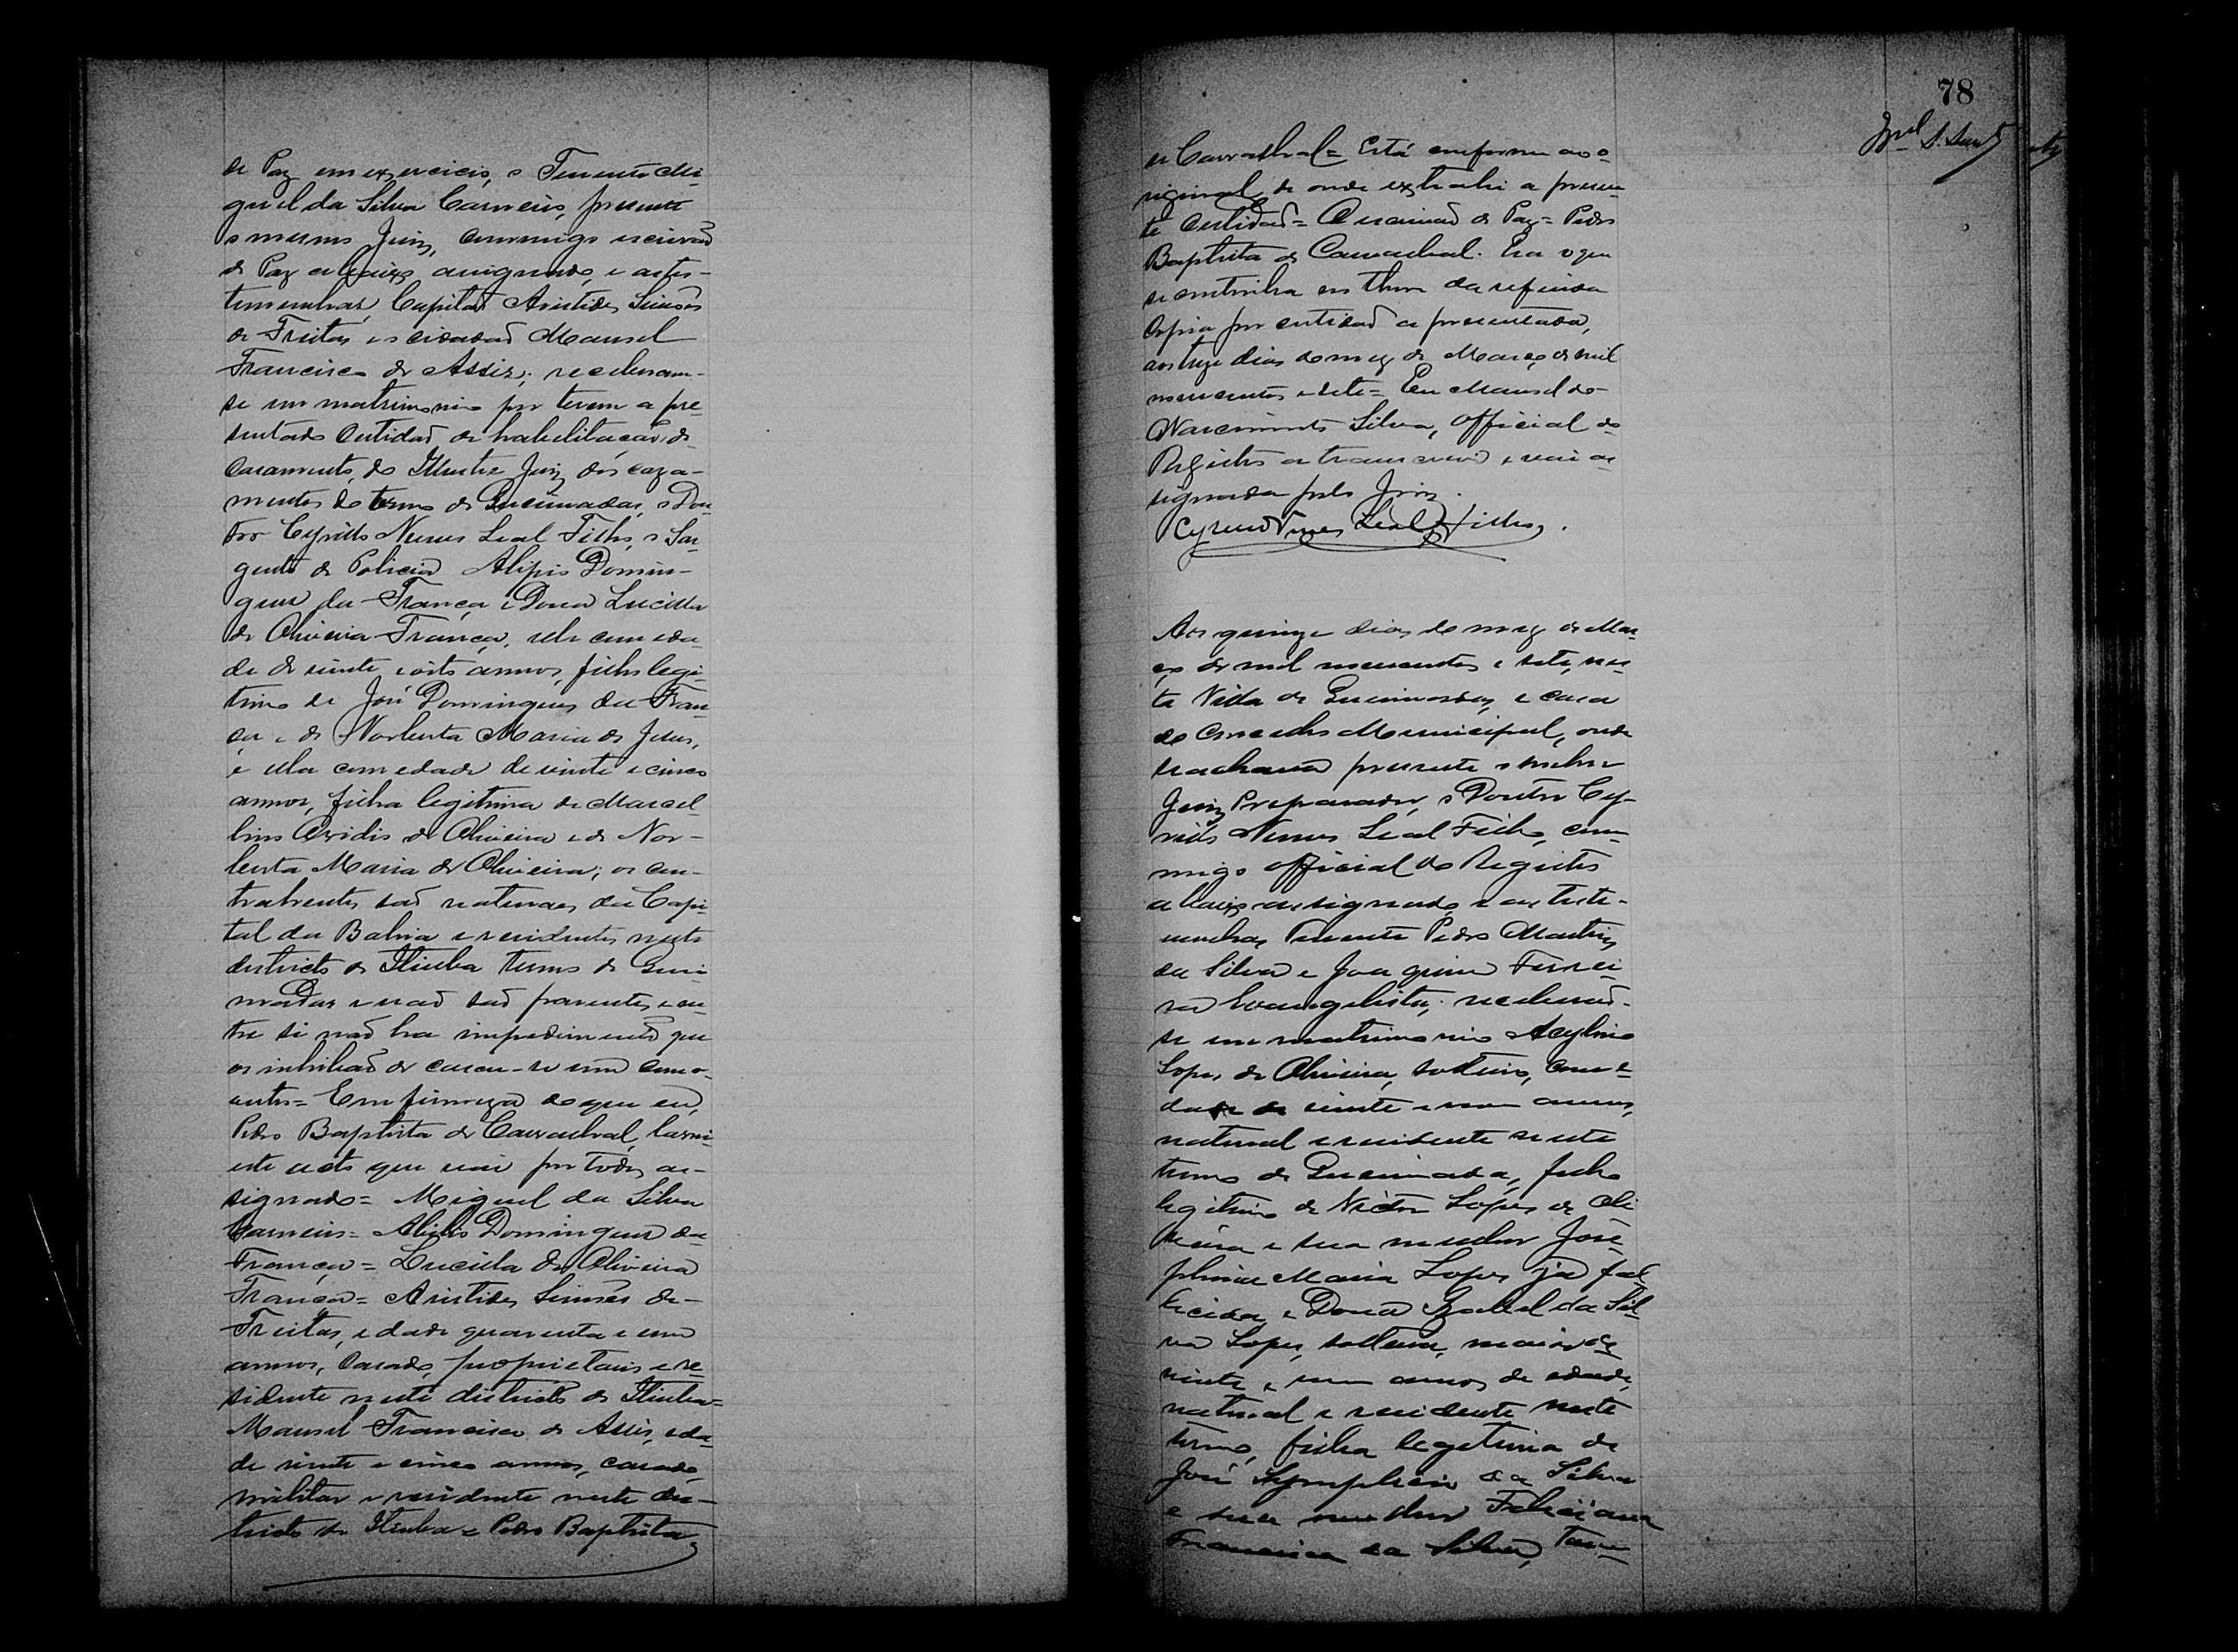 de Paz em exercicio, o Tenente Mi-
guel da Silva Carneiro, presente
o mesmo Juiz, commigo escrivão
de Paz abaixo assignado, e as tes-
temunhas, Capitão Aristides Simões
de Freitas e o cidadão Manoel
Francisco de Assis; receberam-
se em matrimonio por terem apre-
sentado certidão de habilitação de
casamento, do Illustre Juiz dos caza-
mentos do termo de Queimadas, o Dou-
tor Cyrillo Nunes Leal Filho, o Sar-
gento de Policia Alipio Domin-
gues da França e Dona Lucilla
de Oliveira França, elle com eda-
de de vinte e oito annos, filho legi-
timo de José Domingues da Fran-
ça e de Norberta Maria de Jesus,
e ella com edade de vinte e cinco
annos, filha legitima de Marcel-
lino de Oliveira e de Nor-
berta Maria de Oliveira; os con-
trahentes são naturaes da Capi-
tal da Bahia e residentes neste
districto de Itiuba termo de Quei-
madas e não são parentes, e en-
tre si não ha impedimento que
os inhibão de casar-se um com o
outro = Em firmeza do que eu,
Pedro Baptista de Carvalhal, lavrei
este acto que vai por todos as-
signado = Miguel da Silva
Carneiro = Alipio Domingues da
França = Lucilla de Oliveira
França = Aristides Simões de
Freitas, edade quarenta e um
annos, casado, proprietario e re-
sidente neste districto de Itiuba =
Manoel Francisco de Assis, eda-
de vinte e cinco annos, casado,
militar e residente neste dis-
tricto de Itiuba = Pedro Baptista
78
de Carvalhal = Está conforme ao o-
riginal, de onde extrahi a presen-
te certidão = O escrivão de Paz = Pedro
Baptista de Carvalhal. Era o que
se continha em theor da referida
copia por certidão apresentada,
aos treze dias do mez de Março de mil
novecentos e sete = Eu Manoel do
Nascimento Silva, Official do
Registro a transcrevi e vai as-
signada pelo Juiz.
Cyrillo Nunes Leal Filho.
Aos quinze dias do mez de Mar-
ço de mil novecentos e sete, nes-
ta Villa de Queimadas, e casa
do Conselho Municipal, onde
se achava presente o senhor
Juiz Preparador, o Doutor Cy-
rillo Nunes Leal Filho, com-
migo official do Registro
abaixo assignado, e as teste-
munhas Tenente Pedro Martins
da Silva e Joaquim Ferrei-
ra Evangelista; receberão-
se em matrimonio Acylino
Lopes de Oliveira, solteiro, com e-
dade de vinte e annos,
natural e residente neste
termo de Queimadas, filho
legitimo de Victor Lopes de Oli-
veira e sua mulher José-
phina Maria Lopes já fal-
lecida, e Dona Izabel da Sil-
va Lopes, solteira, maior de
vinte e um annos de edade,
natural e residente neste
termo, filha legitima de
José Symplicio da Silva
e sua mulher Feliciana
Francisca da Silva,